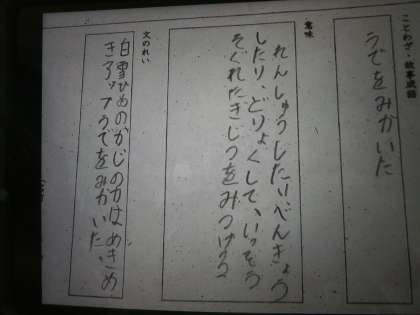 ことわざ・故事成語
うでをみかいた
意味
れんしゅうしたり、べんきょう
したり、どりょくして、いっそう
そぐれたぎじつをみつける
文のれい
白雪ひめのかじの力はめきめ
きアップうでをみかいた。